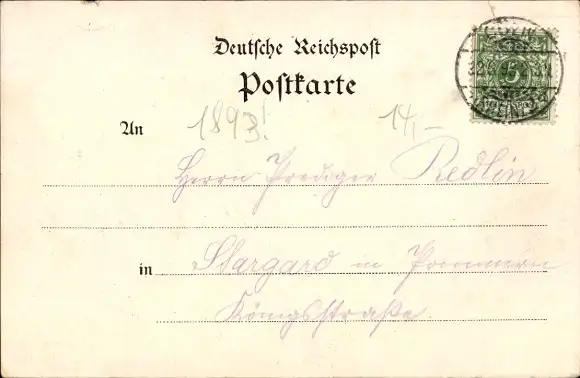 Deutsche Reichspost
Postkarte
5
An
1893!
14,-
Herrn Prediger Redlin
in Stargard in Pommern
Königsstraße.